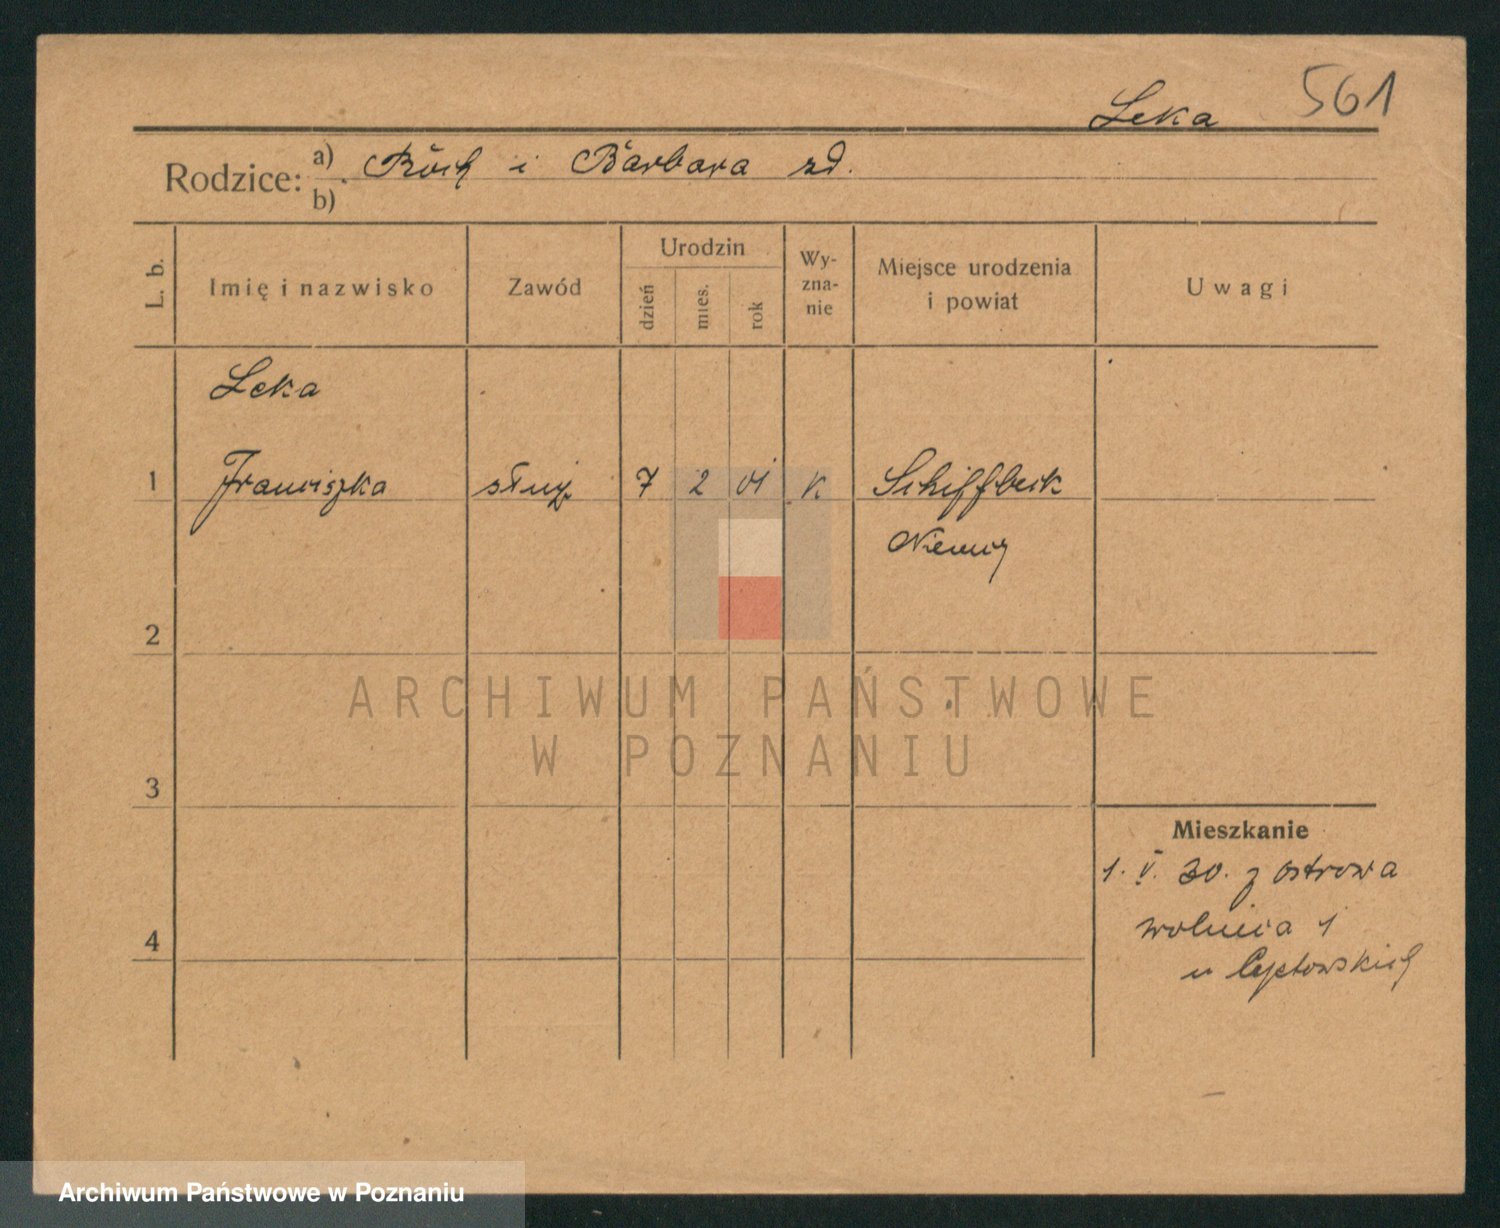 Leka 561
Rodzice: a) Roch i Barbara zd.
b)
L. b. Imię i nazwisko Zawód Urodzin dzień mies. rok Wy-zna-nie Miejsce urodzenia i powiat Uwagi
Leka
1 Franciszka służ. 7 2 01 k Schiffbeck
Niemcy
2
ARCHIWUM PAŃSTWOWE
W POZNANIU
3
Mieszkanie
1. V. 30. z Ostrowa
4 wolnica 1
u
Archiwum Państwowe w Poznaniu